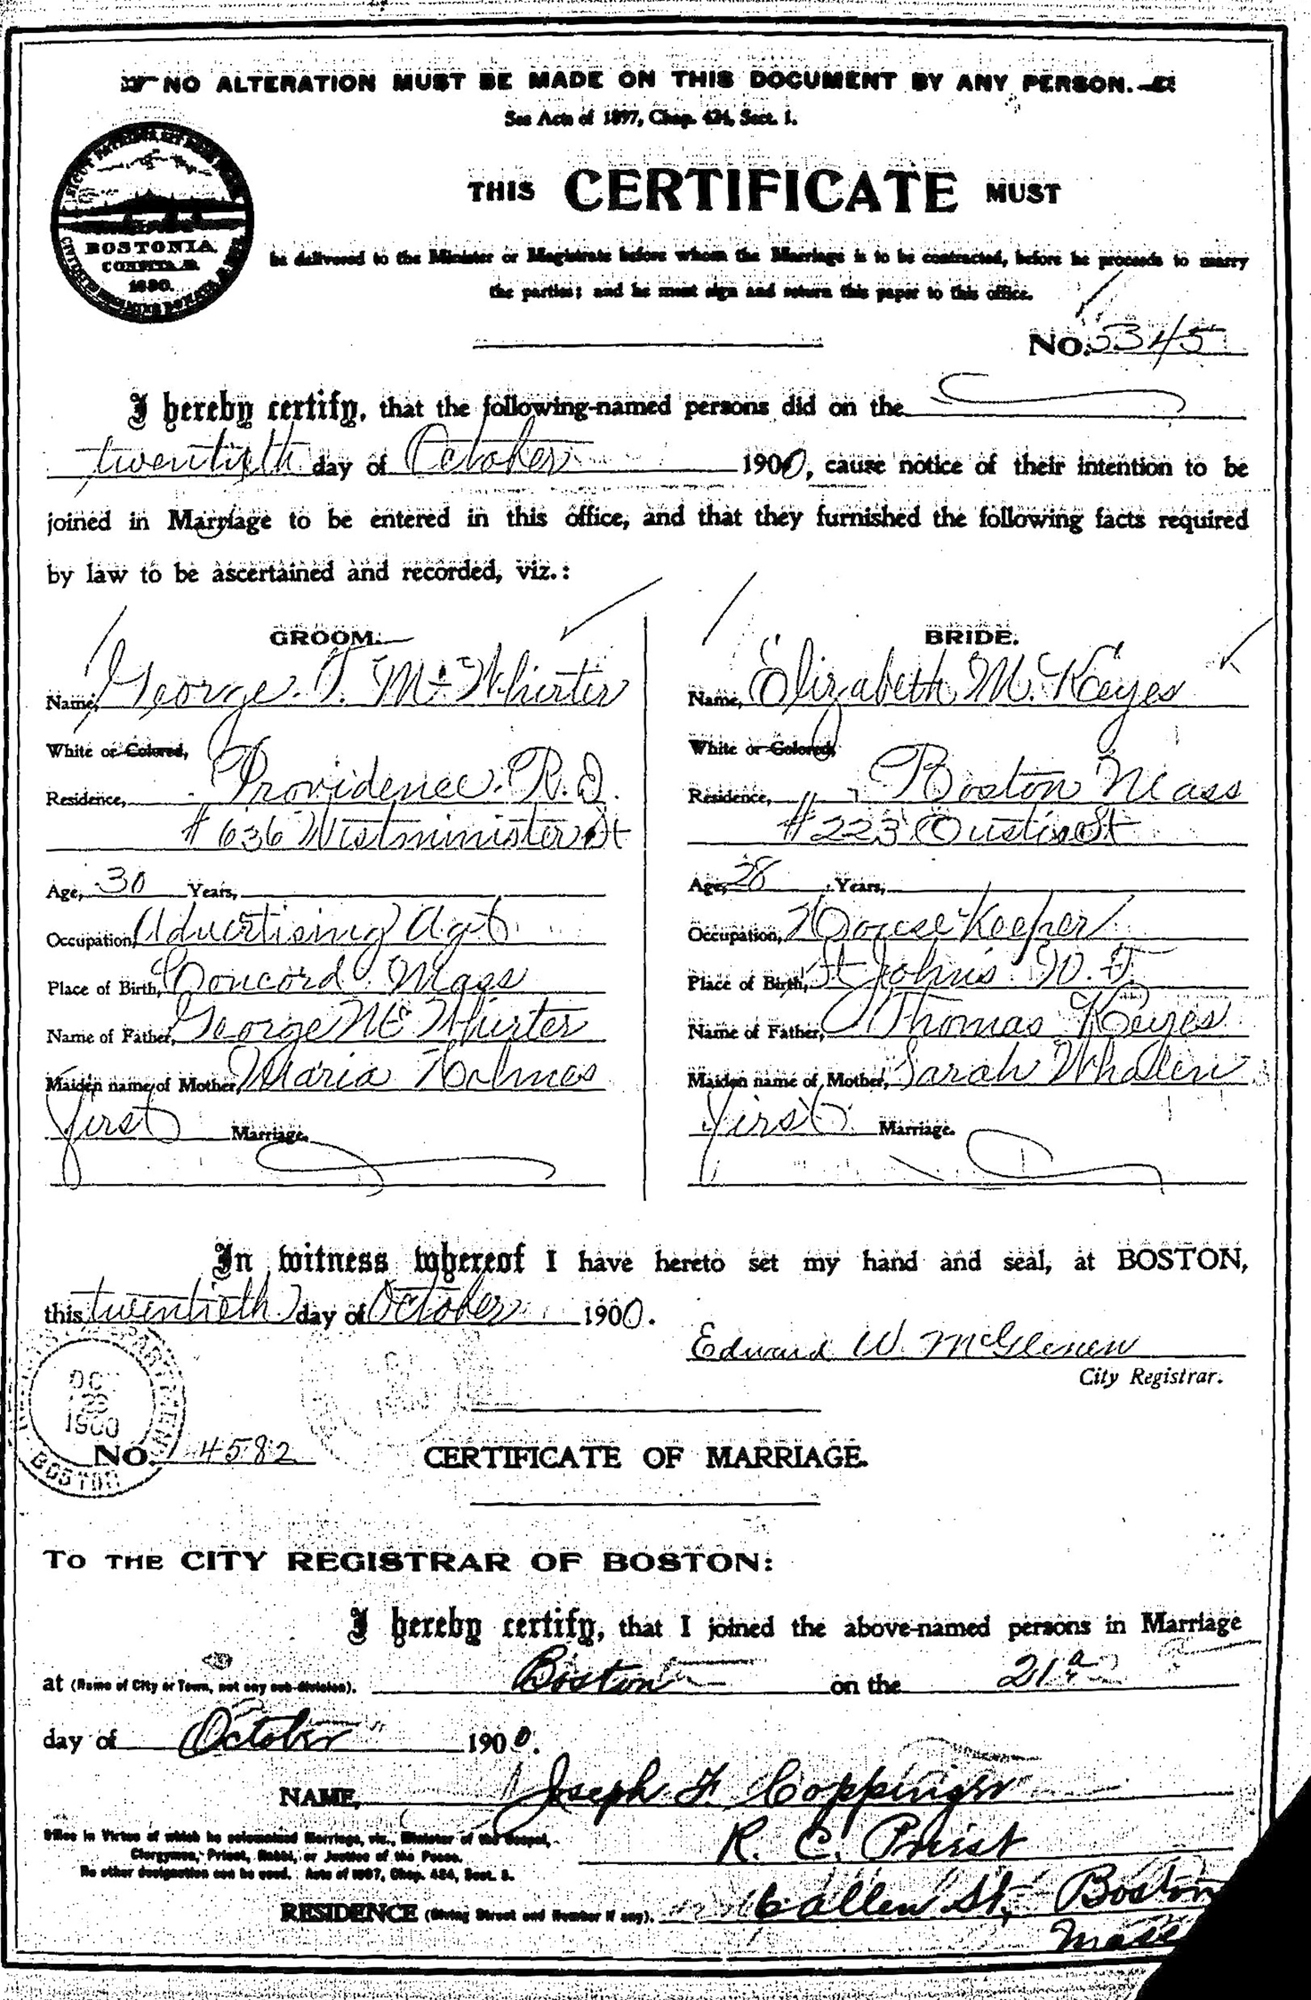 NO ALTERATION MUST BE MADE ON THIS DOCUMENT BY ANY PERSON.
See Acts of 1897, Chap. 424, Sect. 1.
BOSTONIA.
CONDITA A.D.
1630.
THIS CERTIFICATE MUST
be delivered to the Minister or Magistrate before whom the Marriage is to be contracted, before he proceeds to marry
the parties; and he must sign and return this paper to this office.
No. 5345
I hereby certify, that the following-named persons did on the
twentieth day of October 1900, cause notice of their intention to be
joined in Marriage to be entered in this office, and that they furnished the following facts required
by law to be ascertained and recorded, viz.:
GROOM.
Name, George T. McWhirter
White or Colored,
Residence, Providence. R.I.
# 636 Westminister St
Age, 30 Years,
Occupation, Advertising Agt
Place of Birth, Concord Mass
Name of Father, George McWhirter
Maiden name of Mother, Maria Holmes
first Marriage.
BRIDE.
Name, Elizabeth M. Keyes
White or Colored,
Residence, Boston Mass
# 223 St
Age, 28 Years,
Occupation, House Keeper
Place of Birth, St Johns N. F.
Name of Father, Thomas Keyes
Maiden name of Mother, Sarah Whalen
first Marriage.
In witness whereof I have hereto set my hand and seal, at BOSTON,
this twentieth day of October 1900.
Edward W. McGlenen
City Registrar.
OCT
1900
BOSTON
No. 4582
CERTIFICATE OF MARRIAGE.
TO THE CITY REGISTRAR OF BOSTON:
I hereby certify, that I joined the above-named persons in Marriage
at (Name of City or Town, not any sub-division). Boston on the 21
day of October 1900.
NAME, Joseph F. Coppinger
Office in Virtue of which he solemnized Marriage, viz., Minister of the Gospel,
Clergyman, Priest, Rabbi, or Justice of the Peace.
No other designation can be used. Acts of 1897, Chap. 424, Sect. 5.
R. C. Priest
RESIDENCE (Giving Street and Number if any). 6 Allen St, Boston
Mass